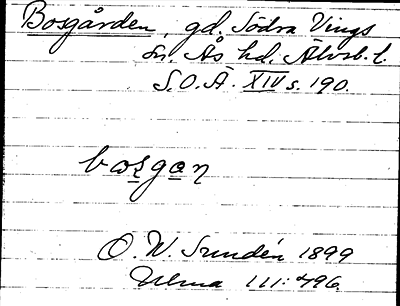 Bosgården, gd. Södra Vings
sn. Ås hd. Älvsb. l.
S.O.Ä. XIV s. 190.
bosgan
O. W. Sundén 1899
Ulma 111:496.